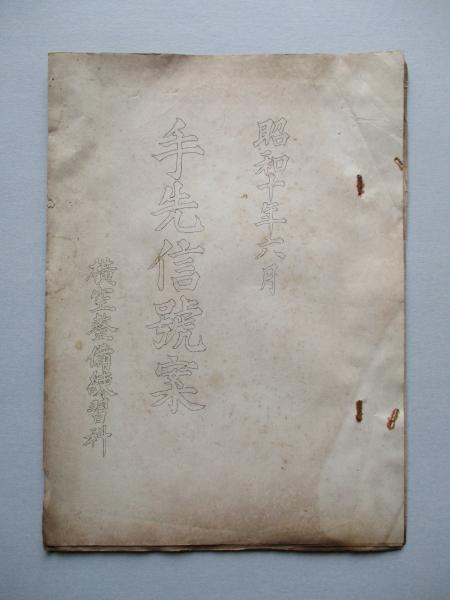 昭和十年六月
手先信號案
横空整備練習科